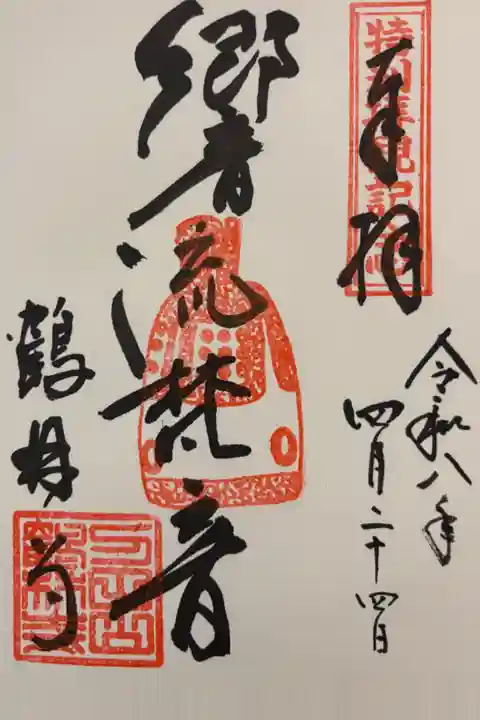 特別拝観記念
奉拝
令和八年
四月二十四日
響流梵音
鶴林寺